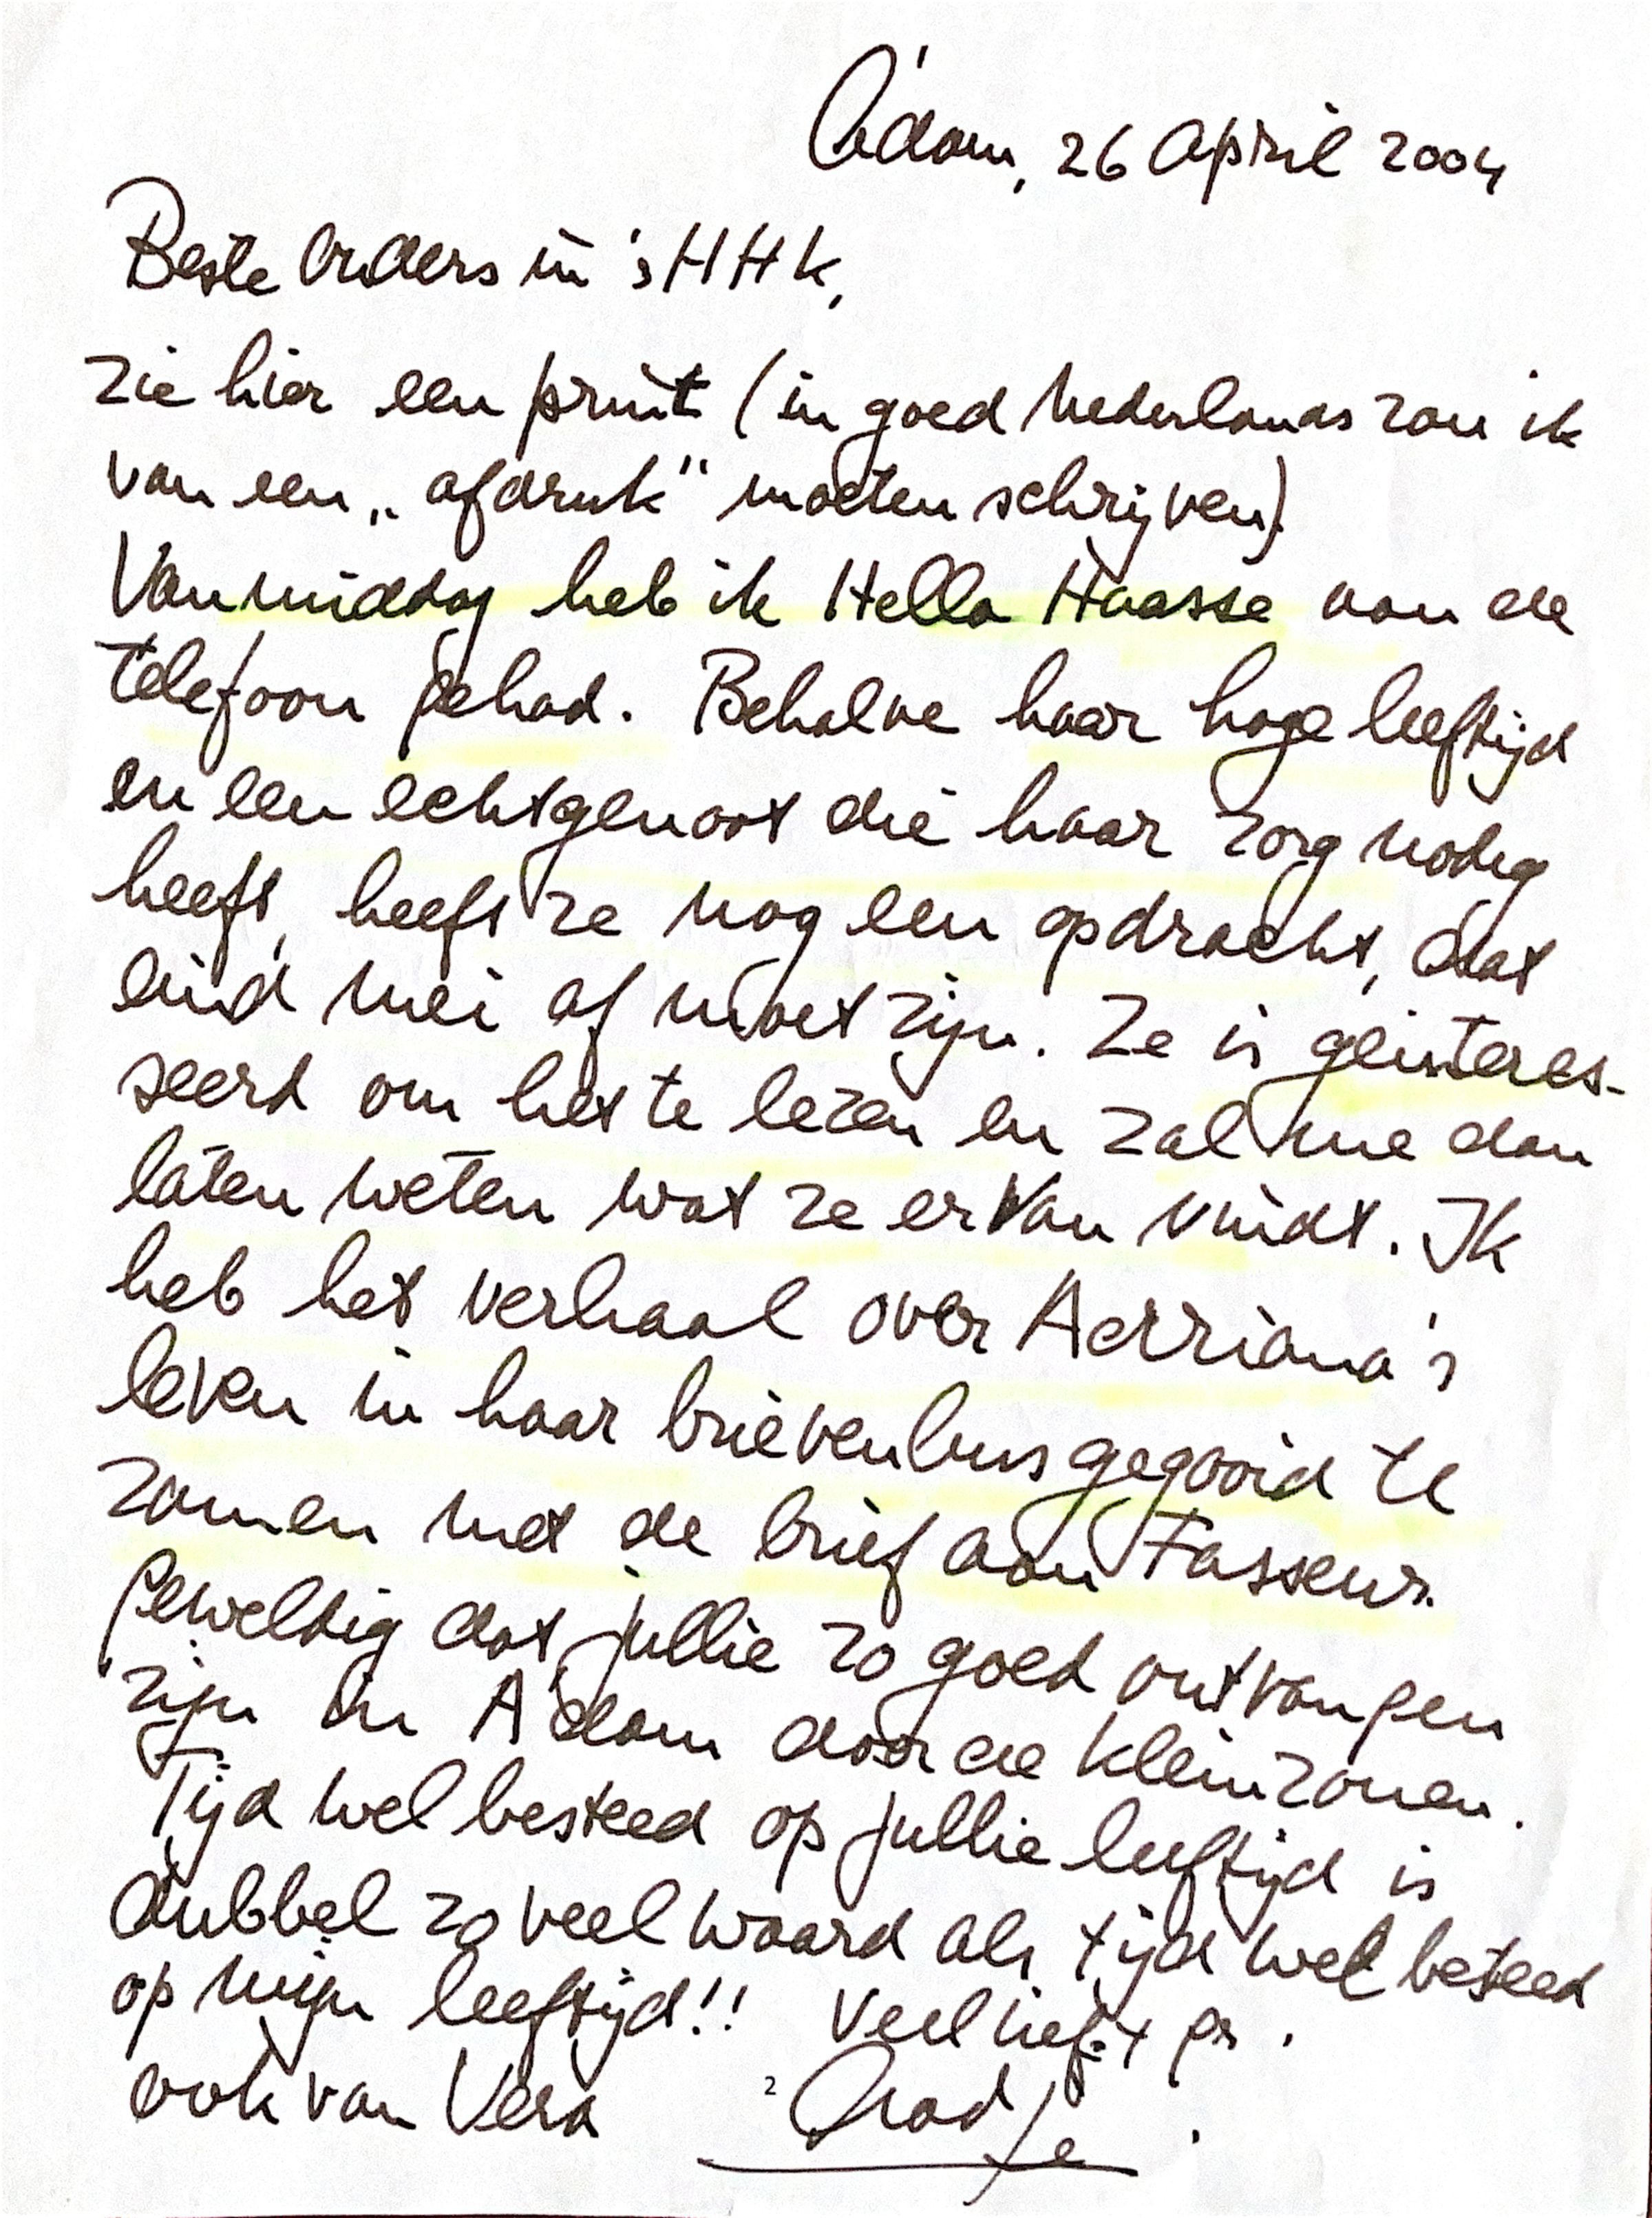 A'dam, 26 April 2004
Beste Ouders in 's HHK,
zie hier een print (in goed Nederlands zou ik
van een „afdruk" moeten schrijven).
Vanmiddag heb ik Hella Haasse aan de
telefoon gehad. Behalve haar hoge leeftijd
en een echtgenoot die haar zorg nodig
heeft, heeft ze nog een opdracht, dat
eind mei af moet zijn. Ze is geinteres-
seerd om het te lezen en zal me dan
laten weten wat ze er van vindt. Ik
heb het verhaal over Adriana's
leven in haar brievenbus gegooid te
zamen met de brief aan Fasseur.
Geweldig dat jullie zo goed ontvangen
zijn in A'dam door de kleinzonen.
Tijd wel besteed op jullie leeftijd is
dubbel zo veel waard als tijd wel besteed
op mijn leeftijd!! Veel liefs +
ook van Vera